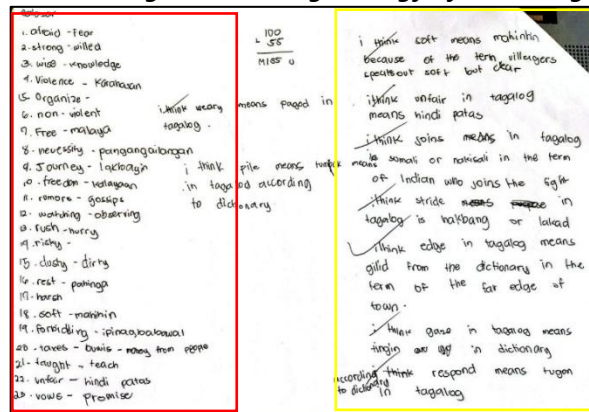 1. afraid - Fear
2. strong - willed
3. wise - knowledge
4. Violence - Karahasan
5. Organize -
6. non - violent
7. Free - malaya
8. necessity - pangangailangan
9. Journey - lakbayin
10. freedom - kalayaan
11. romors - gossips
12. watching - observing
13. rush - hurry
14. risky -
15. dusty - dirty
16. rest - pahinga
17. harsh
18. soft - mahinin
19. forbidding - ipinagbabawal
20. taxes - buwis - money from people
21. taught - teach
22. unfair - hindi patas
23. vows - promise
100
- 55
i think weary means pagod in
tagalog.
i think pile means
in tagalog according
to dictionary
i think soft means mahintin
because of the term villagers
speak out soft but clear
i think unfair in tagalog
means hindi patas
i think joins means in tagalog
is somali or nakisali in the term
of Indian who joins the fight
i think stride in
tagalog is hakbang or lakad
i think edge in tagalog means
gilid from the dictionary in the
term of the far edge of
town.
i think gaze in tagalog means
tingin in dictionary
according i think respond means tugon
to dictionary in tagalog